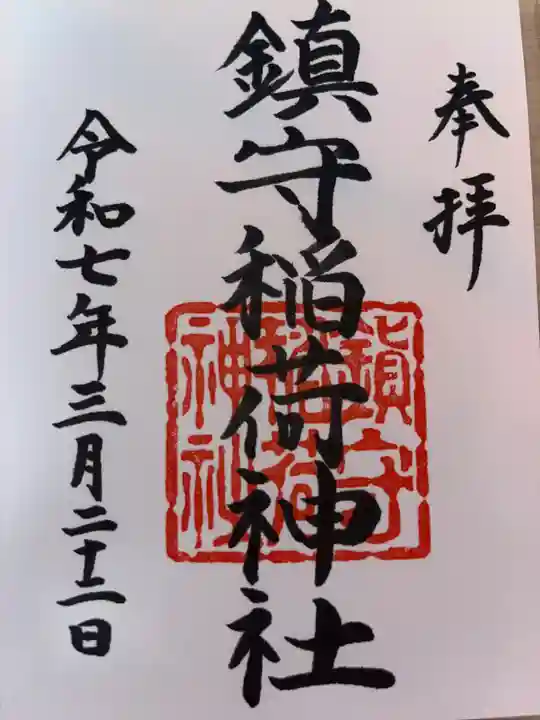 奉拝
鎮守稲荷神社
令和七年三月二十二日
鎮守
稲荷
神社